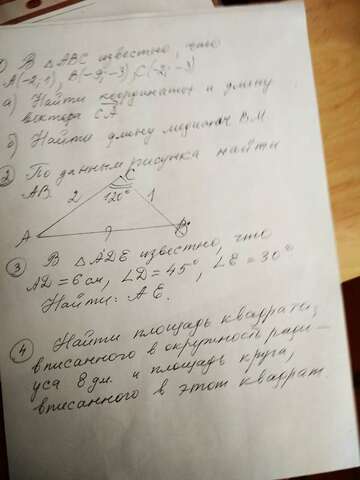 1) В △ABC известно, что
A(-2;1), B(-9;-3), C(-2;-3)
а) Найти координаты и длину
вектора CA
б) Найти длину медианы BM.
2) По данным рисунка найти
AB.
C
2 120° 1
A ? B
3) В △ADE известно, что
AD = 6 см, ∠D = 45°, ∠E = 30°
Найти: AE.
4) Найти площадь квадрата,
вписанного в окружность ради-
уса 8 дм. и площадь круга,
вписанного в этот квадрат.